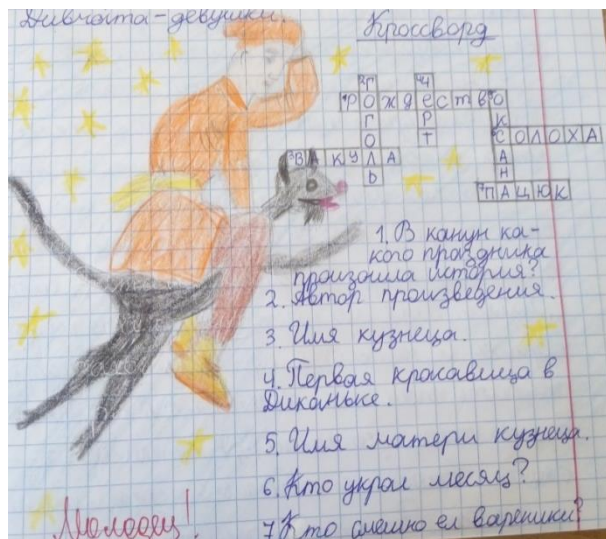 Дивчата - девушки.
Кроссворд
РОЖДЕСТВО
ГОГОЛЬ
ЧЕРТ
ОКСАНА
СОЛОХА
ВАКУЛА
ПАЦЮК
1. В канун ка-
кого праздника
произошла история?
2. Автор произведения.
3. Имя кузнеца.
4. Первая красавица в
Диканьке.
5. Имя матери кузнеца.
6. Кто украл месяц?
7. Кто смешно ел вареники?
Молодец!